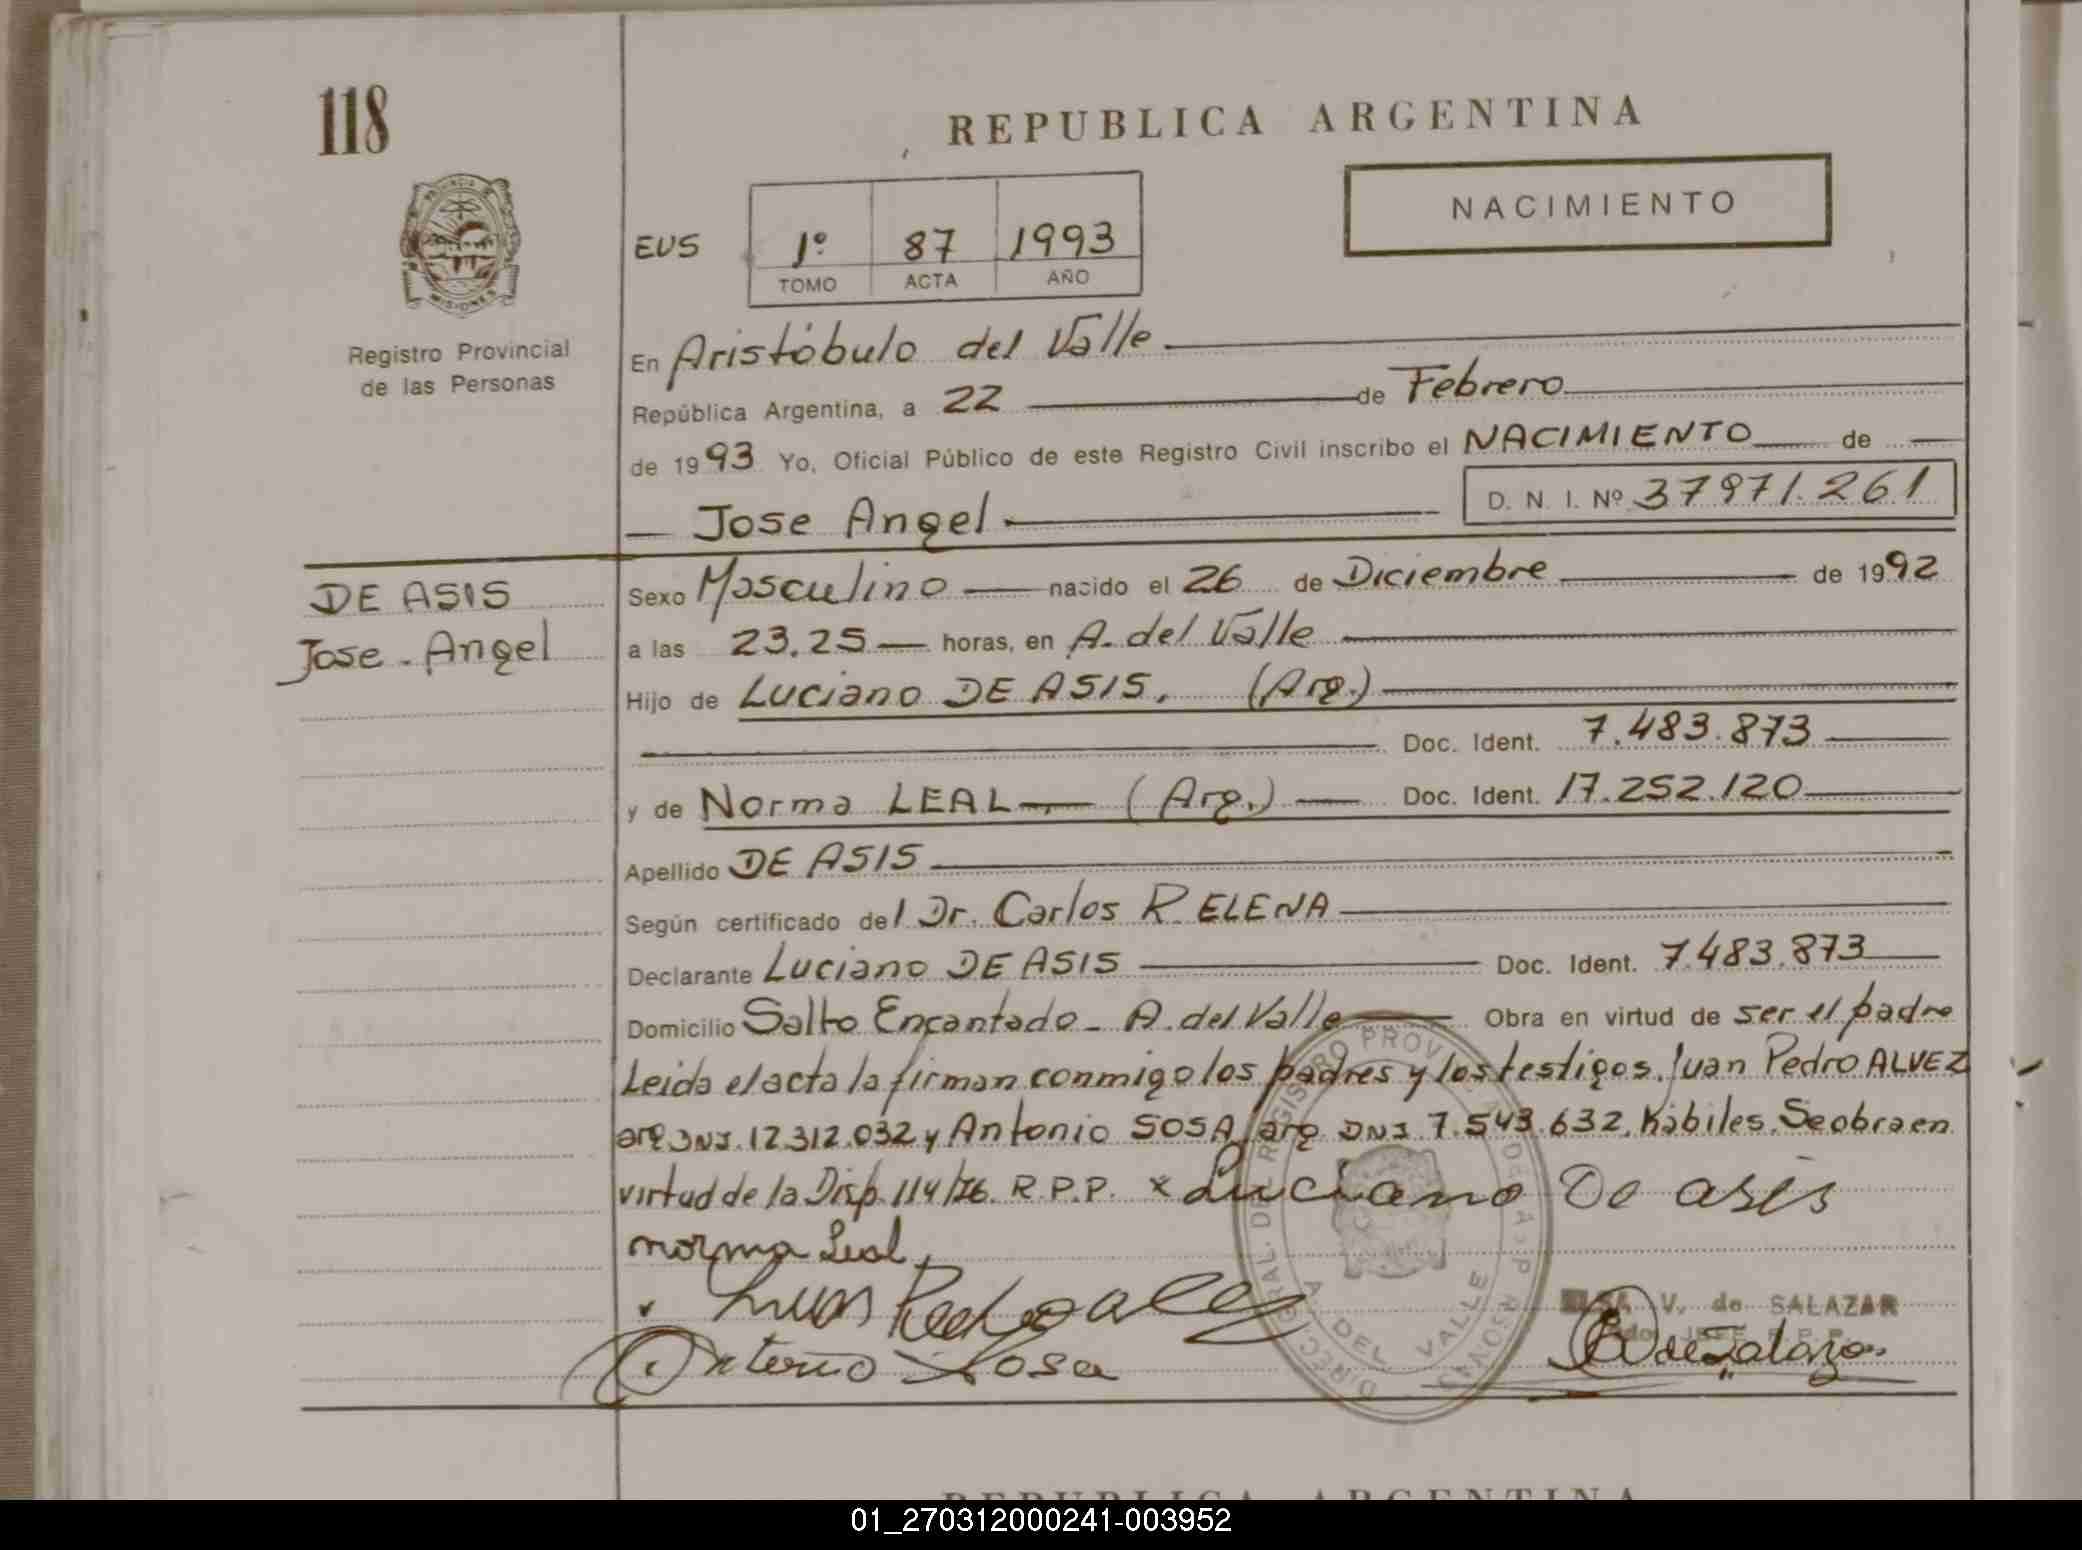 118
REPUBLICA ARGENTINA
NACIMIENTO
PROVINCIA DE
MISIONES
Registro Provincial
de las Personas
EUS 1º 87 1993
TOMO ACTA AÑO
En Aristóbulo del Valle
República Argentina, a 22 de Febrero
de 1993 Yo, Oficial Público de este Registro Civil inscribo el NACIMIENTO de
Jose Angel D. N. I. Nº 37971.261
DE ASIS
Jose - Angel
Sexo Masculino nacido el 26 de Diciembre de 1992
a las 23.25 horas, en A. del Valle
Hijo de Luciano DE ASIS. (Arg.)
Doc. Ident. 7.483.873
y de Norma LEAL (Arg.) Doc. Ident. 17.252.120
Apellido DE ASIS
Según certificado del Dr. Carlos R. ELENA
Declarante Luciano DE ASIS Doc. Ident. 7.483.873
Domicilio Salto Encantado - A. del Valle Obra en virtud de ser el padre
Leida el acta la firman conmigo los padres y los testigos. Juan Pedro ALVEZ
arg DNI. 12.312.032 y Antonio SOSA, arg DNI 7.543.632. hábiles. Se obra en
virtud de la Disp. 114/76. R.P.P. x Luciano De asis
norma Leal
Antonio Sosa
V. de SALAZAR
A. DEL VALLE
REPUBLICA ARGENTINA
01_270312000241-003952